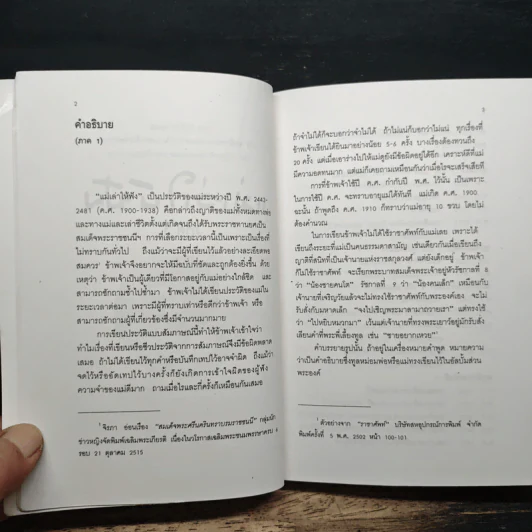 2
คำอธิบาย
(ภาค 1)
"แม่เล่าให้ฟัง" เป็นประวัติของแม่ระหว่างปี พ.ศ. 2443-
2481 (ค.ศ. 1900-1938) คือกล่าวถึงญาติของแม่ทั้งหมดทางพ่อ
และทางแม่และเล่าชีวิตตั้งแต่เกิดจนถึงได้รับพระราชทานยศเป็น
สมเด็จพระราชชนนีฯ การที่เลือกระยะเวลานี้เป็นเพราะเป็นเรื่องที่
ไม่ทราบกันทั่วไป ถึงแม้ว่าจะมีผู้ที่เขียนไว้แล้วอย่างละเอียดพอ
สมควร¹ ข้าพเจ้าจึงอยากจะให้มีฉบับที่ชัดและถูกต้องยิ่งขึ้น ด้วย
เหตุว่า ข้าพเจ้าเป็นผู้เดียวที่มีโอกาสอยู่กับแม่อย่างใกล้ชิด และ
สามารถซักถามซ้ำไปซ้ำมา ข้าพเจ้าไม่ได้เขียนประวัติของแม่ใน
ระยะเวลาต่อมา เพราะมีผู้ที่ทราบเท่าหรือดีกว่าข้าพเจ้า หรือ
สามารถถามผู้ที่เกี่ยวข้องซึ่งมีจำนวนมากมาย
การเขียนประวัติแบบสัมภาษณ์นี้ทำให้ข้าพเจ้าเข้าใจว่า
ทำไมเรื่องที่เขียนหรือชีวประวัติจากการสัมภาษณ์จึงมีข้อผิดพลาด
เสมอ ถ้าไม่ได้เขียนไว้ทุกคำหรือบันทึกเทปไว้อาจจำผิด ถึงแม้ว่า
จดไว้หรืออัดเทปไว้บางครั้งก็ยังเกิดการเข้าใจผิดของผู้ฟัง
ความจำของแม่ดีมาก ถามเมื่อไรและกี่ครั้งก็เหมือนกันเสมอ
¹จิรภา อ่อนเรือง "สมเด็จพระศรีนครินทราบรมราชชนนี" กลุ่มนัก
ข่าวหญิงจัดพิมพ์เฉลิมพระเกียรติ เนื่องในวโรกาสเฉลิมพระชนมพรรษาครบ 6
รอบ 21 ตุลาคม 2515
3
ถ้าจำไม่ได้ก็จะบอกว่าจำไม่ได้ ถ้าไม่แน่ก็บอกว่าไม่แน่ ทุกเรื่องที่
ข้าพเจ้าเขียนได้ยินมาอย่างน้อย 5-6 ครั้ง บางเรื่องต้องทวนถึง
20 ครั้ง แต่เมื่อเอาร่างไปให้แม่ดูยังมีข้อผิดอยู่ได้อีก เคราะห์ดีที่แม่
มีความอดทนมาก แต่แม่ก็เคยถามเหมือนกันว่าเมื่อไรจะเสร็จเสียที
การที่ข้าพเจ้าใช้ปี ค.ศ. กำกับปี พ.ศ. ไว้นั้น เป็นเพราะ
ในการใช้ปี ค.ศ. จะทราบอายุแม่ได้ทันที แม่เกิด ค.ศ. 1900
ฉะนั้น ถ้าพูดถึง ค.ศ. 1910 ก็ทราบว่าแม่อายุ 10 ขวบ โดยไม่
ต้องคำนวณ
ในการเขียนข้าพเจ้าไม่ได้ใช้ราชาศัพท์กับแม่เลย เพราะได้
เขียนถึงระยะที่แม่เป็นคนธรรมดาสามัญ เช่นเดียวกันเมื่อเขียนถึง
ญาติที่สนิทที่เป็นเจ้านายแห่งราชสกุลวงศ์ แต่ยังเด็กอยู่ ข้าพเจ้า
ก็ไม่ใช้ราชาศัพท์ จะเรียกพระบาทสมเด็จพระเจ้าอยู่หัวรัชกาลที่ 8
ว่า "น้องชายคนโต" รัชกาลที่ 9 ว่า "น้องคนเล็ก" เหมือนกับ
เจ้านายที่เจริญวัยแล้วจะไม่ทรงใช้ราชาศัพท์กับพระองค์เอง จะไม่
รับสั่งกับมหาดเล็ก "จงไปเชิญพระมาลามาถวายเรา" แต่ทรงใช้
ว่า "ไปหยิบหมวกมา" เว้นแต่เจ้านายที่ทรงพระเยาว์อยู่มักรับสั่ง
เลียนคำที่พระพี่เลี้ยงทูล เช่น "ชายอยากเหวย"¹
คำบรรยายรูปนั้น ถ้าอยู่ในเครื่องหมายคำพูด หมายความ
ว่าเป็นคำอธิบายซึ่งทูลหม่อมพ่อหรือแม่ทรงเขียนไว้ในอัลบั้มส่วน
พระองค์
¹ตัวอย่างจาก "ราชาศัพท์" บริษัทสหอุปกรณ์การพิมพ์ จำกัด
พิมพ์ครั้งที่ 5 พ.ศ. 2502 หน้า 100-101